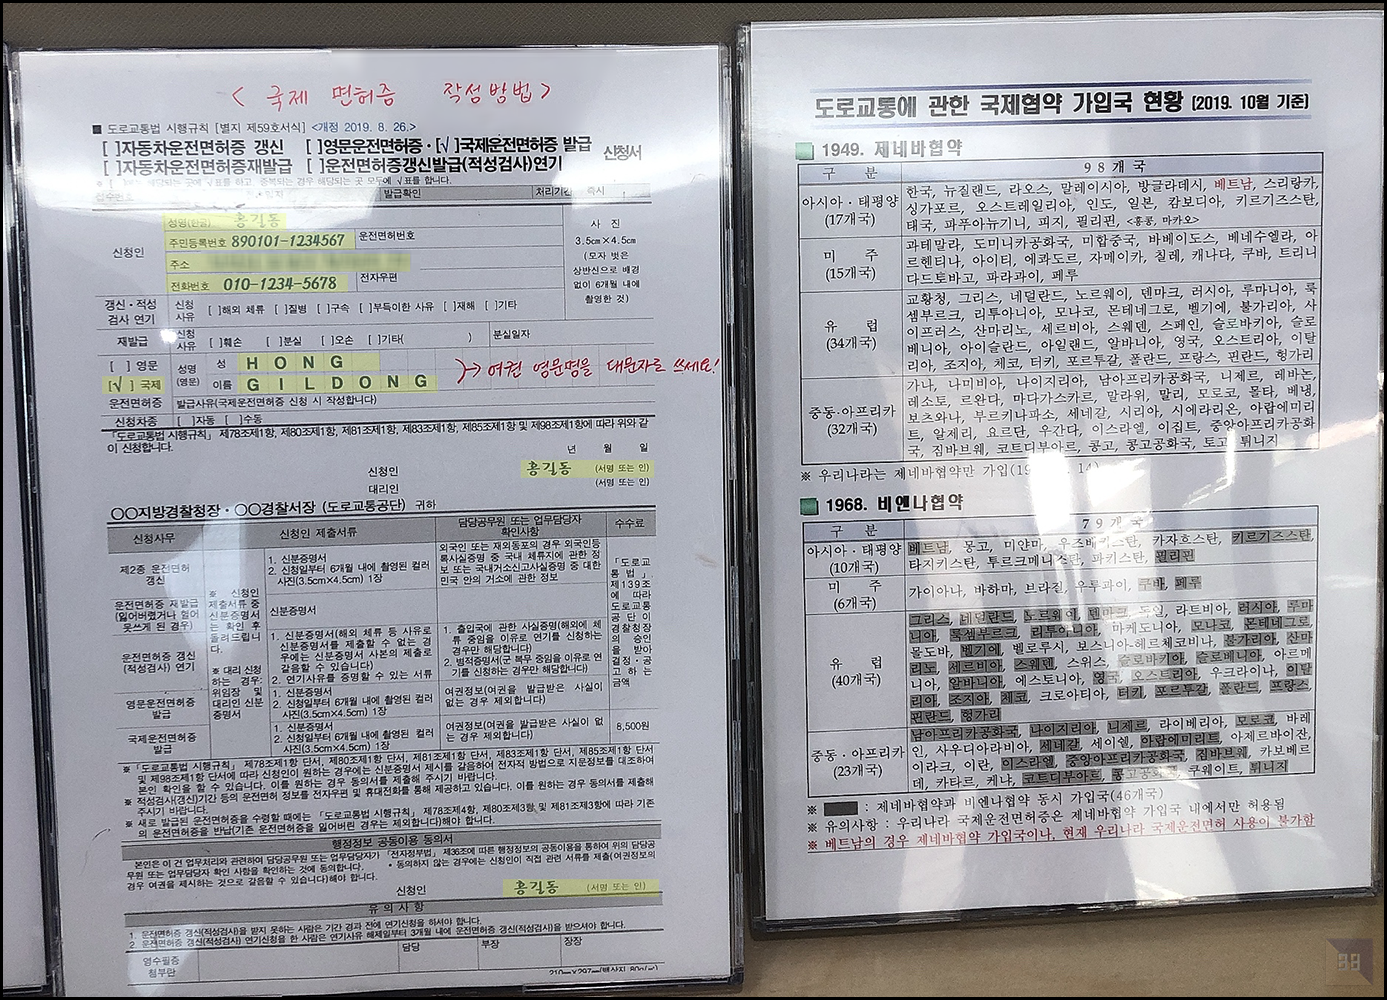 < 국제 면허증 작성방법 >
■ 도로교통법 시행규칙 [별지 제59호서식] <개정 2019. 8. 26.>
[ ]자동차운전면허증 갱신 [ ]영문운전면허증·[√]국제운전면허증 발급
[ ]자동차운전면허증재발급 [ ]운전면허증갱신발급(적성검사)연기
신청서
※ [ ]에는 해당되는 곳에 √표를 하고, 중복되는 경우 해당되는 곳 모두에 √표를 합니다.
발급확인 처리기간 즉시
신청인
성명(한글) 홍길동
주민등록번호 890101-1234567 운전면허번호
주소
전화번호 010-1234-5678 전자우편
사 진
3.5㎝×4.5㎝
(모자 벗은
상반신으로 배경
없이 6개월 내에
촬영한 것)
갱신·적성
검사 연기
신청
사유
[ ]해외 체류 [ ]질병 [ ]구속 [ ]부득이한 사유 [ ]재해 [ ]기타
재발급
신청
사유
[ ]훼손 [ ]분실 [ ]오손 [ ]기타( ) 분실일자
[ ] 영문
[√] 국제
운전면허증
성명
(영문)
성 HONG
이름 GILDONG
}→ 여권 영문명을 대문자로 쓰세요!
발급사유(국제운전면허증 신청 시 작성합니다)
신청차종 [ ]자동 [ ]수동
「도로교통법 시행규칙」 제78조제1항, 제80조제1항, 제81조제1항, 제83조제1항, 제85조제1항 및 제98조제1항에 따라 위와 같
이 신청합니다.
년 월 일
신청인 홍길동 (서명 또는 인)
대리인 (서명 또는 인)
○○지방경찰청장·○○경찰서장 (도로교통공단) 귀하
신청사무 신청인 제출서류 담당공무원 또는 업무담당자
확인사항 수수료
제2종 운전면허
갱신
1. 신분증명서
2. 신청일부터 6개월 내에 촬영된 컬러
사진(3.5cm×4.5cm) 1장
외국인 또는 재외동포의 경우 외국인등
록사실증명 중 국내 체류지에 관한 정
보 또는 국내거소신고사실증명 중 대한
민국 안의 거소에 관한 정보
운전면허증 재발급
(잃어버렸거나 헐어
못쓰게 된 경우)
신분증명서
※ 신청인
제출서류 중
신분증명서
는 확인 후
돌려드립니
다.
※ 대리 신청
하는 경우:
위임장 및
대리인 신분
증명서
운전면허증 갱신
(적성검사) 연기
1. 신분증명서(해외 체류 등 사유로
신분증명서를 제출할 수 없는 경
우에는 신분증명서 사본의 제출로
갈음할 수 있습니다)
2. 연기사유를 증명할 수 있는 서류
1. 출입국에 관한 사실증명(해외에 체
류 중임을 이유로 연기를 신청하는
경우만 해당합니다)
2. 병적증명서(군 복무 중임을 이유로 연
기를 신청하는 경우만 해당합니다)
영문운전면허증
발급
1. 신분증명서
2. 신청일부터 6개월 내에 촬영된 컬러
사진(3.5cm×4.5cm) 1장
여권정보(여권을 발급받은 사실이
없는 경우 제외합니다)
국제운전면허증
발급
1. 신분증명서
2. 신청일부터 6개월 내에 촬영된 컬러
사진(3.5cm×4.5cm) 1장
여권정보(여권을 발급받은 사실이 없
는 경우 제외합니다)
「도로교
통법」
제139조
에 따라
도로교통
공단이
경찰청장
의 승인
을 받아
결정·공
고 하는
금액
8,500원
※「도로교통법 시행규칙」 제78조제1항 단서, 제80조제1항 단서, 제81조제1항 단서, 제83조제1항 단서, 제85조제1항 단서
및 제98조제1항 단서에 따라 신청인이 원하는 경우에는 신분증명서 제시를 갈음하여 전자적 방법으로 지문정보를 대조하여
본인 확인을 할 수 있습니다. 이를 원하는 경우 동의서를 제출해 주시기 바랍니다.
※ 적성검사(갱신)기간 등의 운전면허 정보를 전자우편 및 휴대전화를 통해 제공하고 있습니다. 이를 원하는 경우 동의서를 제출해
주시기 바랍니다.
※ 새로 발급된 운전면허증을 수령할 때에는 「도로교통법 시행규칙」 제78조제4항, 제80조제3항 및 제81조제3항에 따라 기존
의 운전면허증을 반납(기존 운전면허증을 잃어버린 경우는 제외합니다)해야 합니다.
행정정보 공동이용 동의서
본인은 이 건 업무처리와 관련하여 담당공무원 또는 업무담당자가 「전자정부법」 제36조에 따른 행정정보의 공동이용을 통하여 위의 담당공
무원 또는 업무담당자 확인 사항을 확인하는 것에 동의합니다. * 동의하지 않는 경우에는 신청인이 직접 관련 서류를 제출(여권정보의
경우 여권을 제시하는 것으로 갈음할 수 있습니다)해야 합니다.
신청인 홍길동 (서명 또는 인)
유의사항
1. 운전면허증 갱신(적성검사)을 받지 못하는 사람은 기간 경과 전에 연기신청을 하셔야 합니다.
2. 운전면허증 갱신(적성검사) 연기신청을 한 사람은 연기사유 해제일부터 3개월 내에 운전면허증 갱신(적성검사)을 받으셔야 합니다.
영수필증
첨부란
담당 부장 장장
210㎜×297㎜(백상지 80g/㎡)
도로교통에 관한 국제협약 가입국 현황 (2019. 10월 기준)
1949. 제네바협약
구 분 98개국
아시아·태평양
(17개국)
한국, 뉴질랜드, 라오스, 말레이시아, 방글라데시, 베트남, 스리랑카,
싱가포르, 오스트레일리아, 인도, 일본, 캄보디아, 키르기즈스탄,
태국, 파푸아뉴기니, 피지, 필리핀, <홍콩, 마카오>
미 주
(15개국)
과테말라, 도미니카공화국, 미합중국, 바베이도스, 베네수엘라, 아
르헨티나, 아이티, 에콰도르, 자메이카, 칠레, 캐나다, 쿠바, 트리니
다드토바고, 파라과이, 페루
유 럽
(34개국)
교황청, 그리스, 네덜란드, 노르웨이, 덴마크, 러시아, 루마니아, 룩
셈부르크, 리투아니아, 모나코, 몬테네그로, 벨기에, 불가리아, 사
이프러스, 산마리노, 세르비아, 스웨덴, 스페인, 슬로바키아, 슬로
베니아, 아이슬란드, 아일랜드, 알바니아, 영국, 오스트리아, 이탈
리아, 조지아, 체코, 터키, 포르투갈, 폴란드, 프랑스, 핀란드, 헝가리
중동·아프리카
(32개국)
가나, 나미비아, 나이지리아, 남아프리카공화국, 니제르, 레바논,
레소토, 르완다, 마다가스카르, 말라위, 말리, 모로코, 몰타, 베냉,
보츠와나, 부르키나파소, 세네갈, 시리아, 시에라리온, 아랍에미리
트, 알제리, 요르단, 우간다, 이스라엘, 이집트, 중앙아프리카공화
국, 짐바브웨, 코트디부아르, 콩고, 콩고공화국, 토고, 튀니지
※ 우리나라는 제네바협약만 가입
1968. 비엔나협약
구 분 79개국
아시아·태평양
(10개국)
베트남, 몽고, 미얀마, 우즈베키스탄, 카자흐스탄, 키르기즈스탄,
타지키스탄, 투르크메니스탄, 파키스탄, 필리핀
미 주
(6개국)
가이아나, 바하마, 브라질, 우루과이, 쿠바, 페루
유 럽
(40개국)
그리스, 네덜란드, 노르웨이, 덴마크, 독일, 라트비아, 러시아, 루마
니아, 룩셈부르크, 리투아니아, 마케도니아, 모나코, 몬테네그로,
몰도바, 벨기에, 벨로루시, 보스니아-헤르체코비나, 불가리아, 산마
리노, 세르비아, 스웨덴, 스위스, 슬로바키아, 슬로베니아, 아르메
니아, 알바니아, 에스토니아, 영국, 오스트리아, 우크라이나, 이탈
리아, 조지아, 체코, 크로아티아, 터키, 포르투갈, 폴란드, 프랑스,
핀란드, 헝가리
중동·아프리카
(23개국)
남아프리카공화국, 나이지리아, 니제르, 라이베리아, 모로코, 바레
인, 사우디아라비아, 세네갈, 세이셸, 아랍에미리트, 아제르바이잔,
이라크, 이란, 이스라엘, 중앙아프리카공화국, 짐바브웨, 카보베르
데, 카타르, 케냐, 코트디부아르, 콩고공화국, 쿠웨이트, 튀니지
※ : 제네바협약과 비엔나협약 동시 가입국(46개국)
※ 유의사항 : 우리나라 국제운전면허증은 제네바협약 가입국 내에서만 허용됨
※ 베트남의 경우 제네바협약 가입국이나, 현재 우리나라 국제운전면허 사용이 불가함